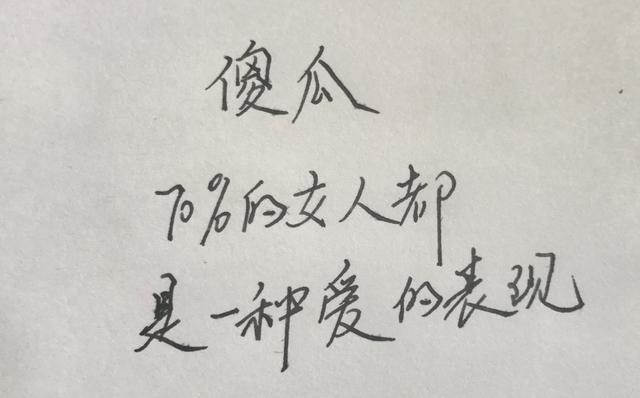 傻瓜
70%的女人都
是一种爱的表现